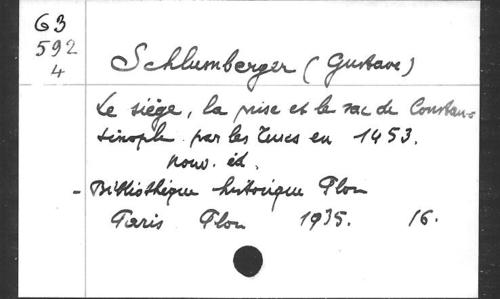 63
592
4
Schlumberger (Gustave)
Le siège, la prise et le sac de Constan-
tinople par les Turcs en 1453.
nouv. éd.
- Bibliothèque historique Plon
Paris Plon 1935. 16.